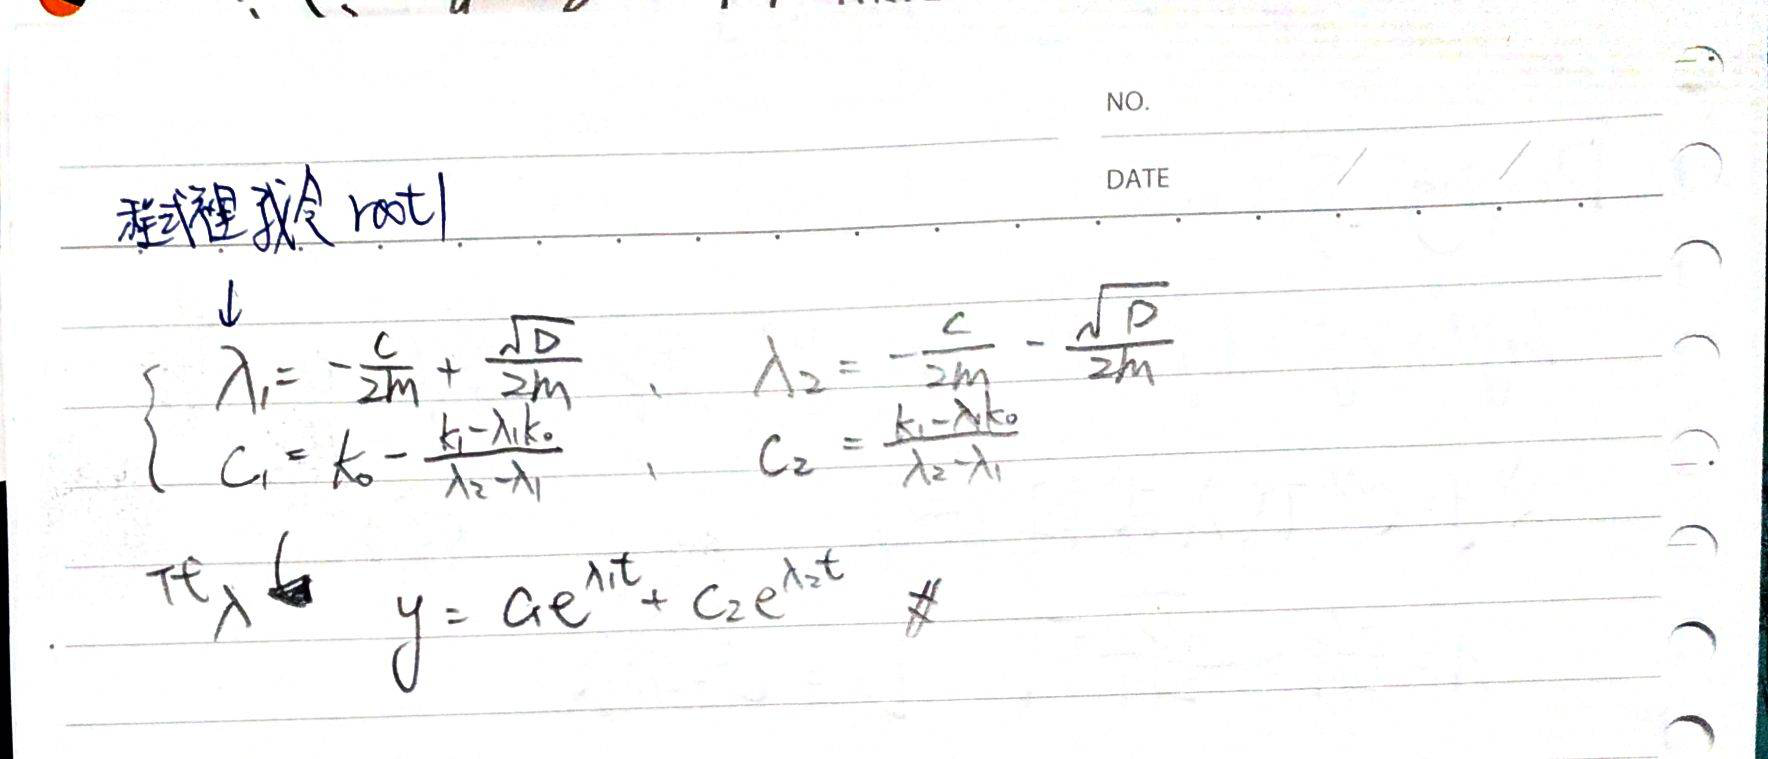 NO.
DATE / /
程式裡我令 root1
↓
λ₁ = -c/2m + √D/2m 、 λ₂ = -c/2m - √D/2m
C₁ = k₀ - (k₁-λ₁k₀)/(λ₂-λ₁) 、 C₂ = (k₁-λ₁k₀)/(λ₂-λ₁)
代入 y = C₁e^(λ₁t) + C₂e^(λ₂t) #